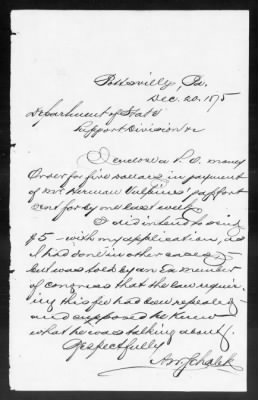 Pottsville, Pa.
Dec. 20. 1875
Department of State
Passport Division
I enclose a P. O. money
Order for five dollars in payment
of Mr. Herman Vulpius' passport
sent for by me last week.
I did intend to send
$5 - with my application, as
I had done in other cases,
but was told by an Ex member
of congress that the law requir-
ing this fee had been repealed -
and supposed he knew
what he was talking about.
Respectfully
Schalck